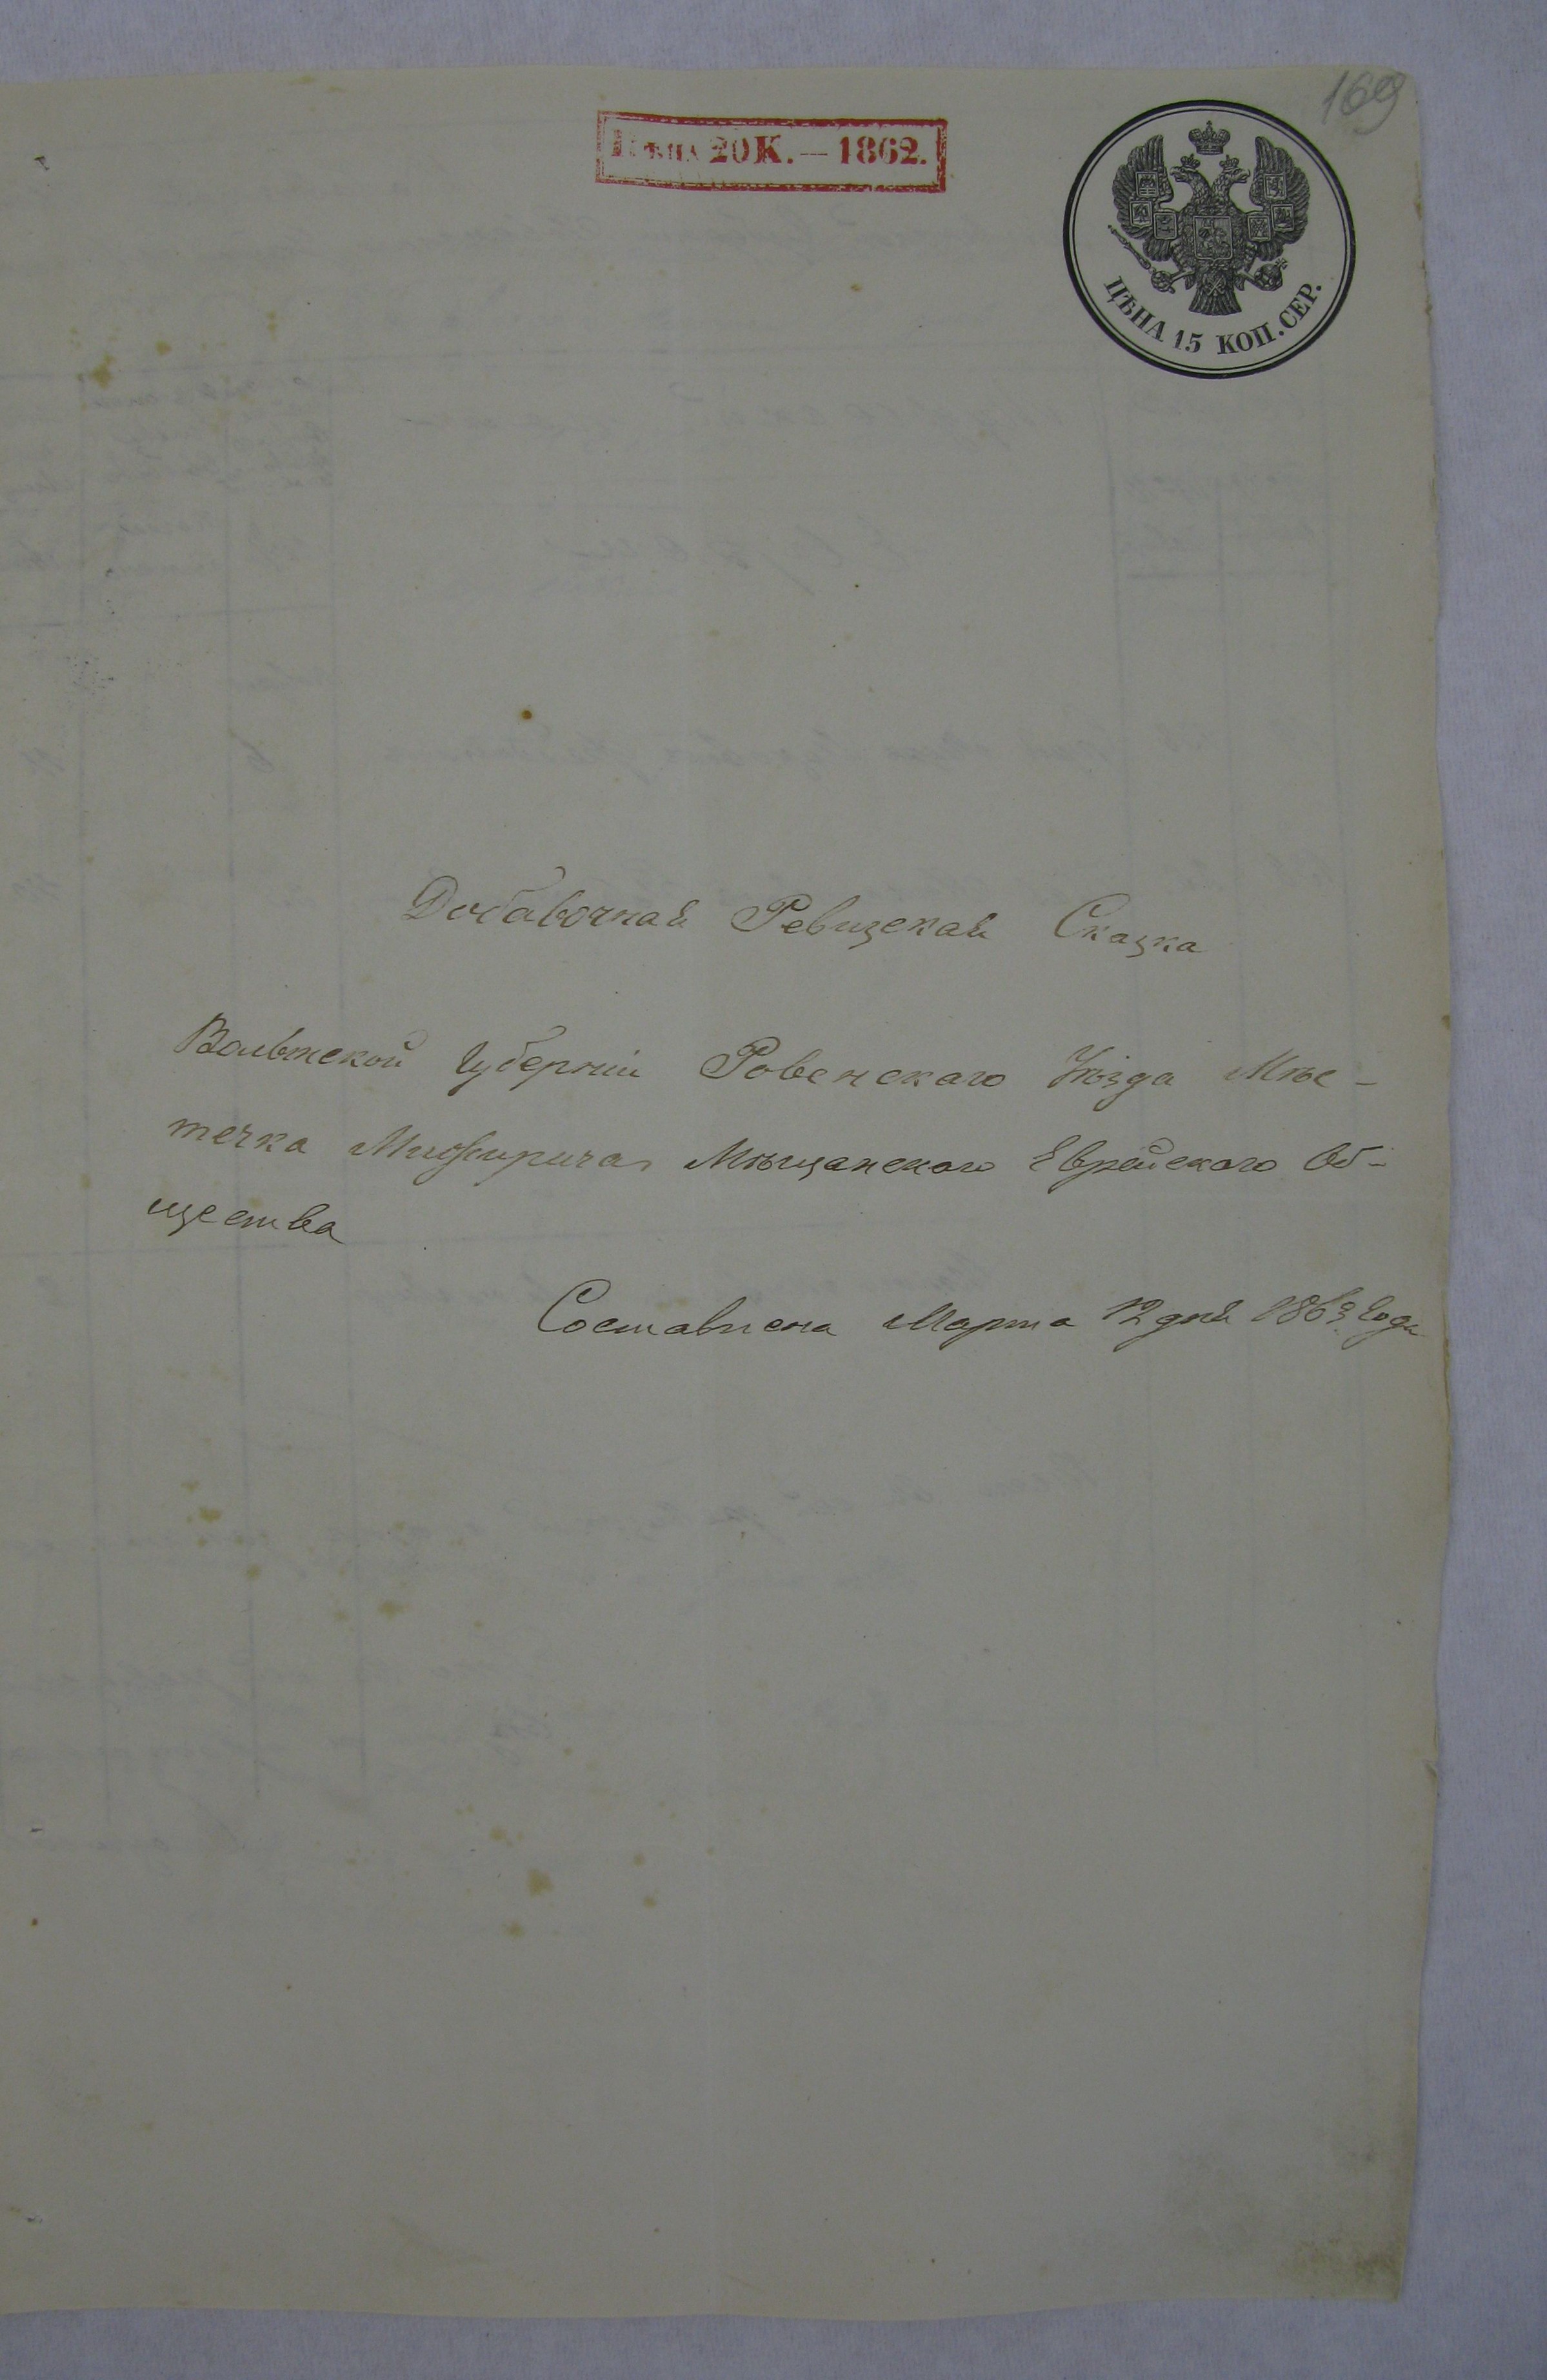 169
Цѣна 20 К. — 1862.
ЦѢНА 15 КОП. СЕР.
Добавочная Ревизская Сказка
Волынской Губерніи Ровенскаго Уѣзда Мѣс-
течка Межирича Мѣщанскаго Еврейскаго Об-
щества
Составлена Марта 12 дня 1863 Года